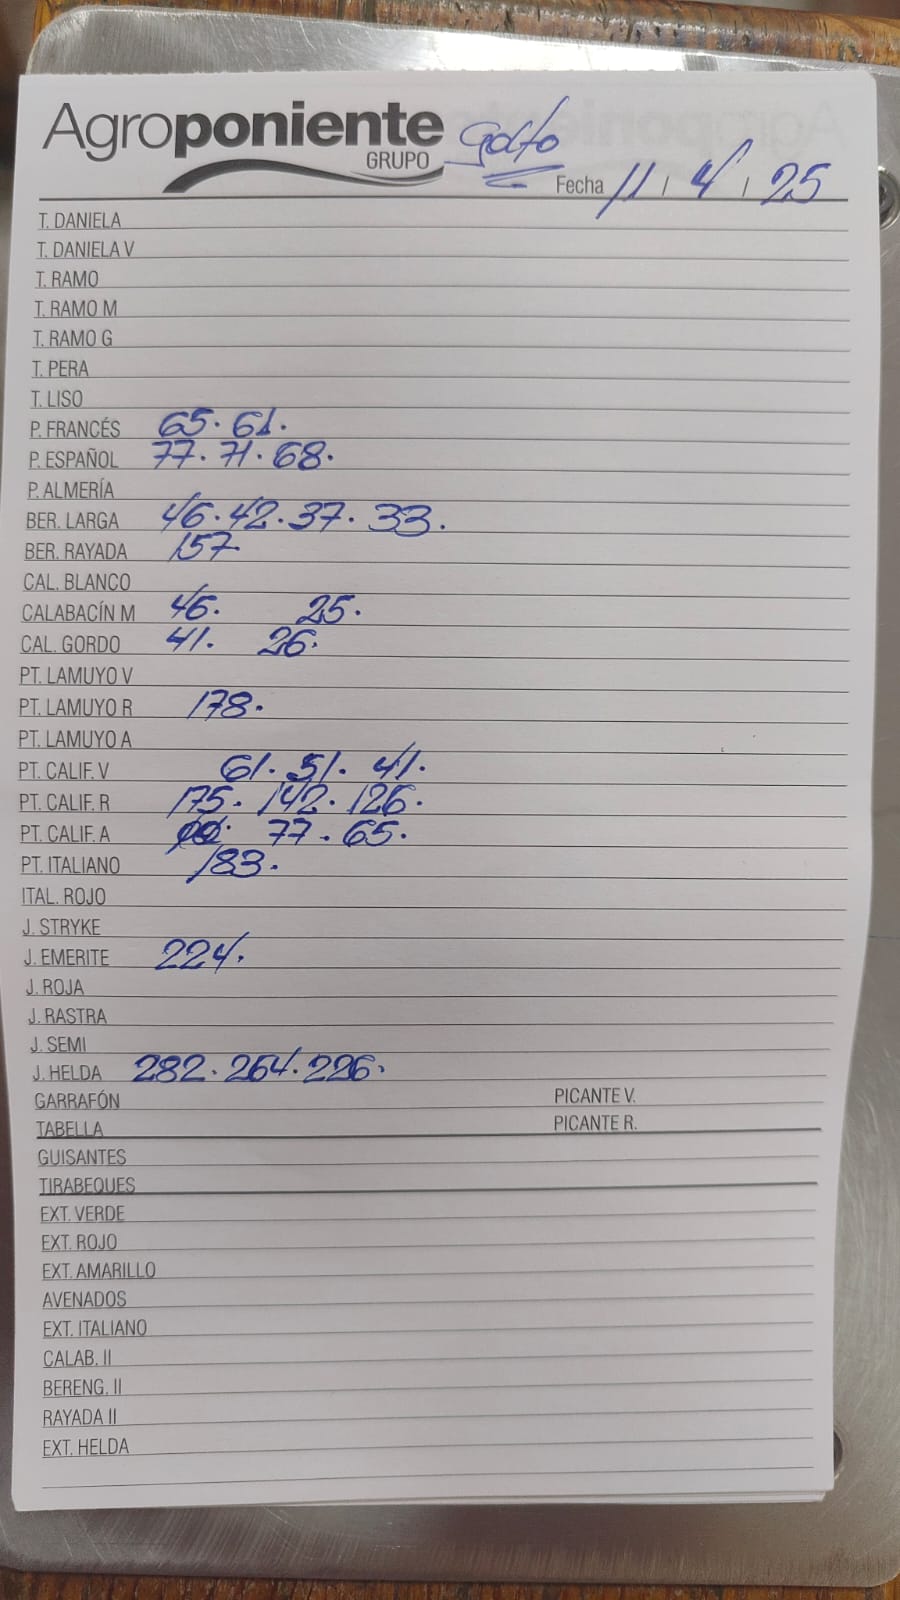 Agroponiente
GRUPO
Golfo
Fecha 11 / 4 / 25
T. DANIELA
T. DANIELA V
T. RAMO
T. RAMO M
T. RAMO G
T. PERA
T. LISO
P. FRANCÉS 65. 61.
P. ESPAÑOL 77. 71. 68.
P. ALMERÍA
BER. LARGA 46. 42. 37. 33.
BER. RAYADA 157.
CAL. BLANCO
CALABACÍN M 46. 25.
CAL. GORDO 41. 26.
PT. LAMUYO V
PT. LAMUYO R 178.
PT. LAMUYO A
PT. CALIF. V 61. 51. 41.
PT. CALIF. R 175. 142. 126.
PT. CALIF. A 77. 65.
PT. ITALIANO 183.
ITAL. ROJO
J. STRYKE
J. EMERITE 224.
J. ROJA
J. RASTRA
J. SEMI
J. HELDA 282. 264. 226.
GARRAFÓN PICANTE V.
TABELLA PICANTE R.
GUISANTES
TIRABEQUES
EXT. VERDE
EXT. ROJO
EXT. AMARILLO
AVENADOS
EXT. ITALIANO
CALAB. II
BERENG. II
RAYADA II
EXT. HELDA